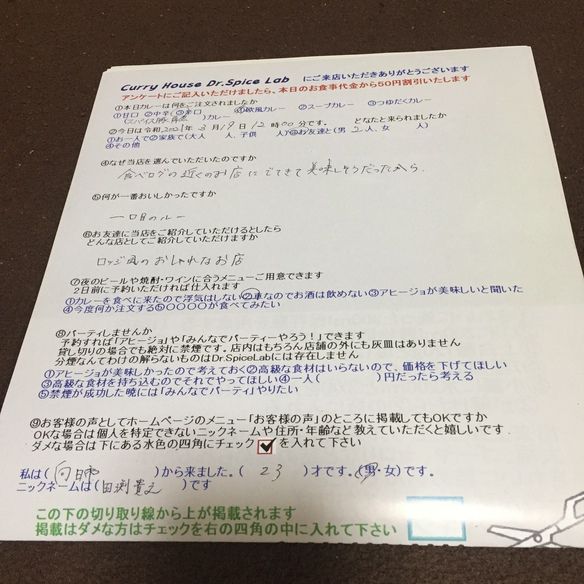 Curry House Dr.Spice Lab にご来店いただきありがとうございます
アンケートにご記入いただけましたら、本日のお食事代金から50円割引いたします
①本日カレーは何をご注文されましたか
①甘口 ②中辛 ③辛口 カレー ③欧風カレー ②スープカレー ③つゆだくカレー
②今日は令和 2021年 3月 19日 12時00分です。 どなたと来られましたか
①お一人で②家族で(大人 人、子供 人)③お友達と(男 2人、女 人)
④その他
④なぜ当店を選んでいただいたのですか
食べログの近くのお店にでてきて美味しそうだったから
⑤何が一番おいしかったですか
一口目のルー
⑥お友達に当店をご紹介していただけるとしたら
どんな店としてご紹介していただけますか
ロッジ風のおしゃれなお店
⑦夜のビールや焼酎・ワインに合うメニューご用意できます
2日前に予約いただければ仕入れます
①カレーを食べに来たので浮気はしない②車なのでお酒は飲めない③アヒージョが美味しいと聞いた
④今度何か注文する⑤〇〇〇〇が食べてみたい
⑧パーティしませんか
予約すれば「アヒージョ」や「みんなでパーティーやろう!」できます
貸し切りの場合でも絶対に禁煙です。店内はもちろん店舗の外にも灰皿はありません
分煙なんてわけの解らないものはDr.SpiceLabには存在しません
①アヒージョが美味しかったので考えておく②高級な食材はいらないので、価格を下げてほしい
③高級な食材を持ち込むのでそれでやってほしい④一人( )円だったら考える
⑤禁煙が成功した暁には「みんなでパーティ」やりたい
⑨お客様の声としてホームページのメニュー「お客様の声」のところに掲載してもOKですか
OKな場合は個人を特定できないニックネームや住所・年齢など教えていただくと嬉しいです
ダメな場合は下にある水色の四角にチェック✔を入れて下さい
私は( )から来ました。( 23 )才です。(男・女)です。
ニックネームは( 田渕貴之 )です
この下の切り取り線から上が掲載されます
掲載はダメな方はチェックを右の四角の中に入れて下さい